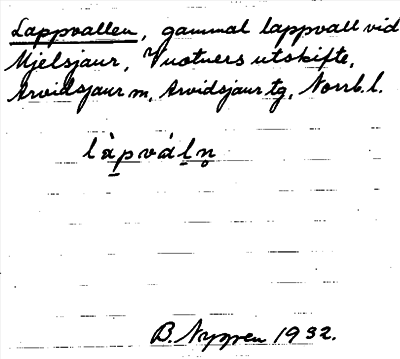 Lappvallen, gammal lappvall vid
Mjelsjaur, Vuotners utskifte,
Arvidsjaur m, Arvidsjaur tg, Norrb. l.
làp̱vàḻn̥
B. Nygren 1932.